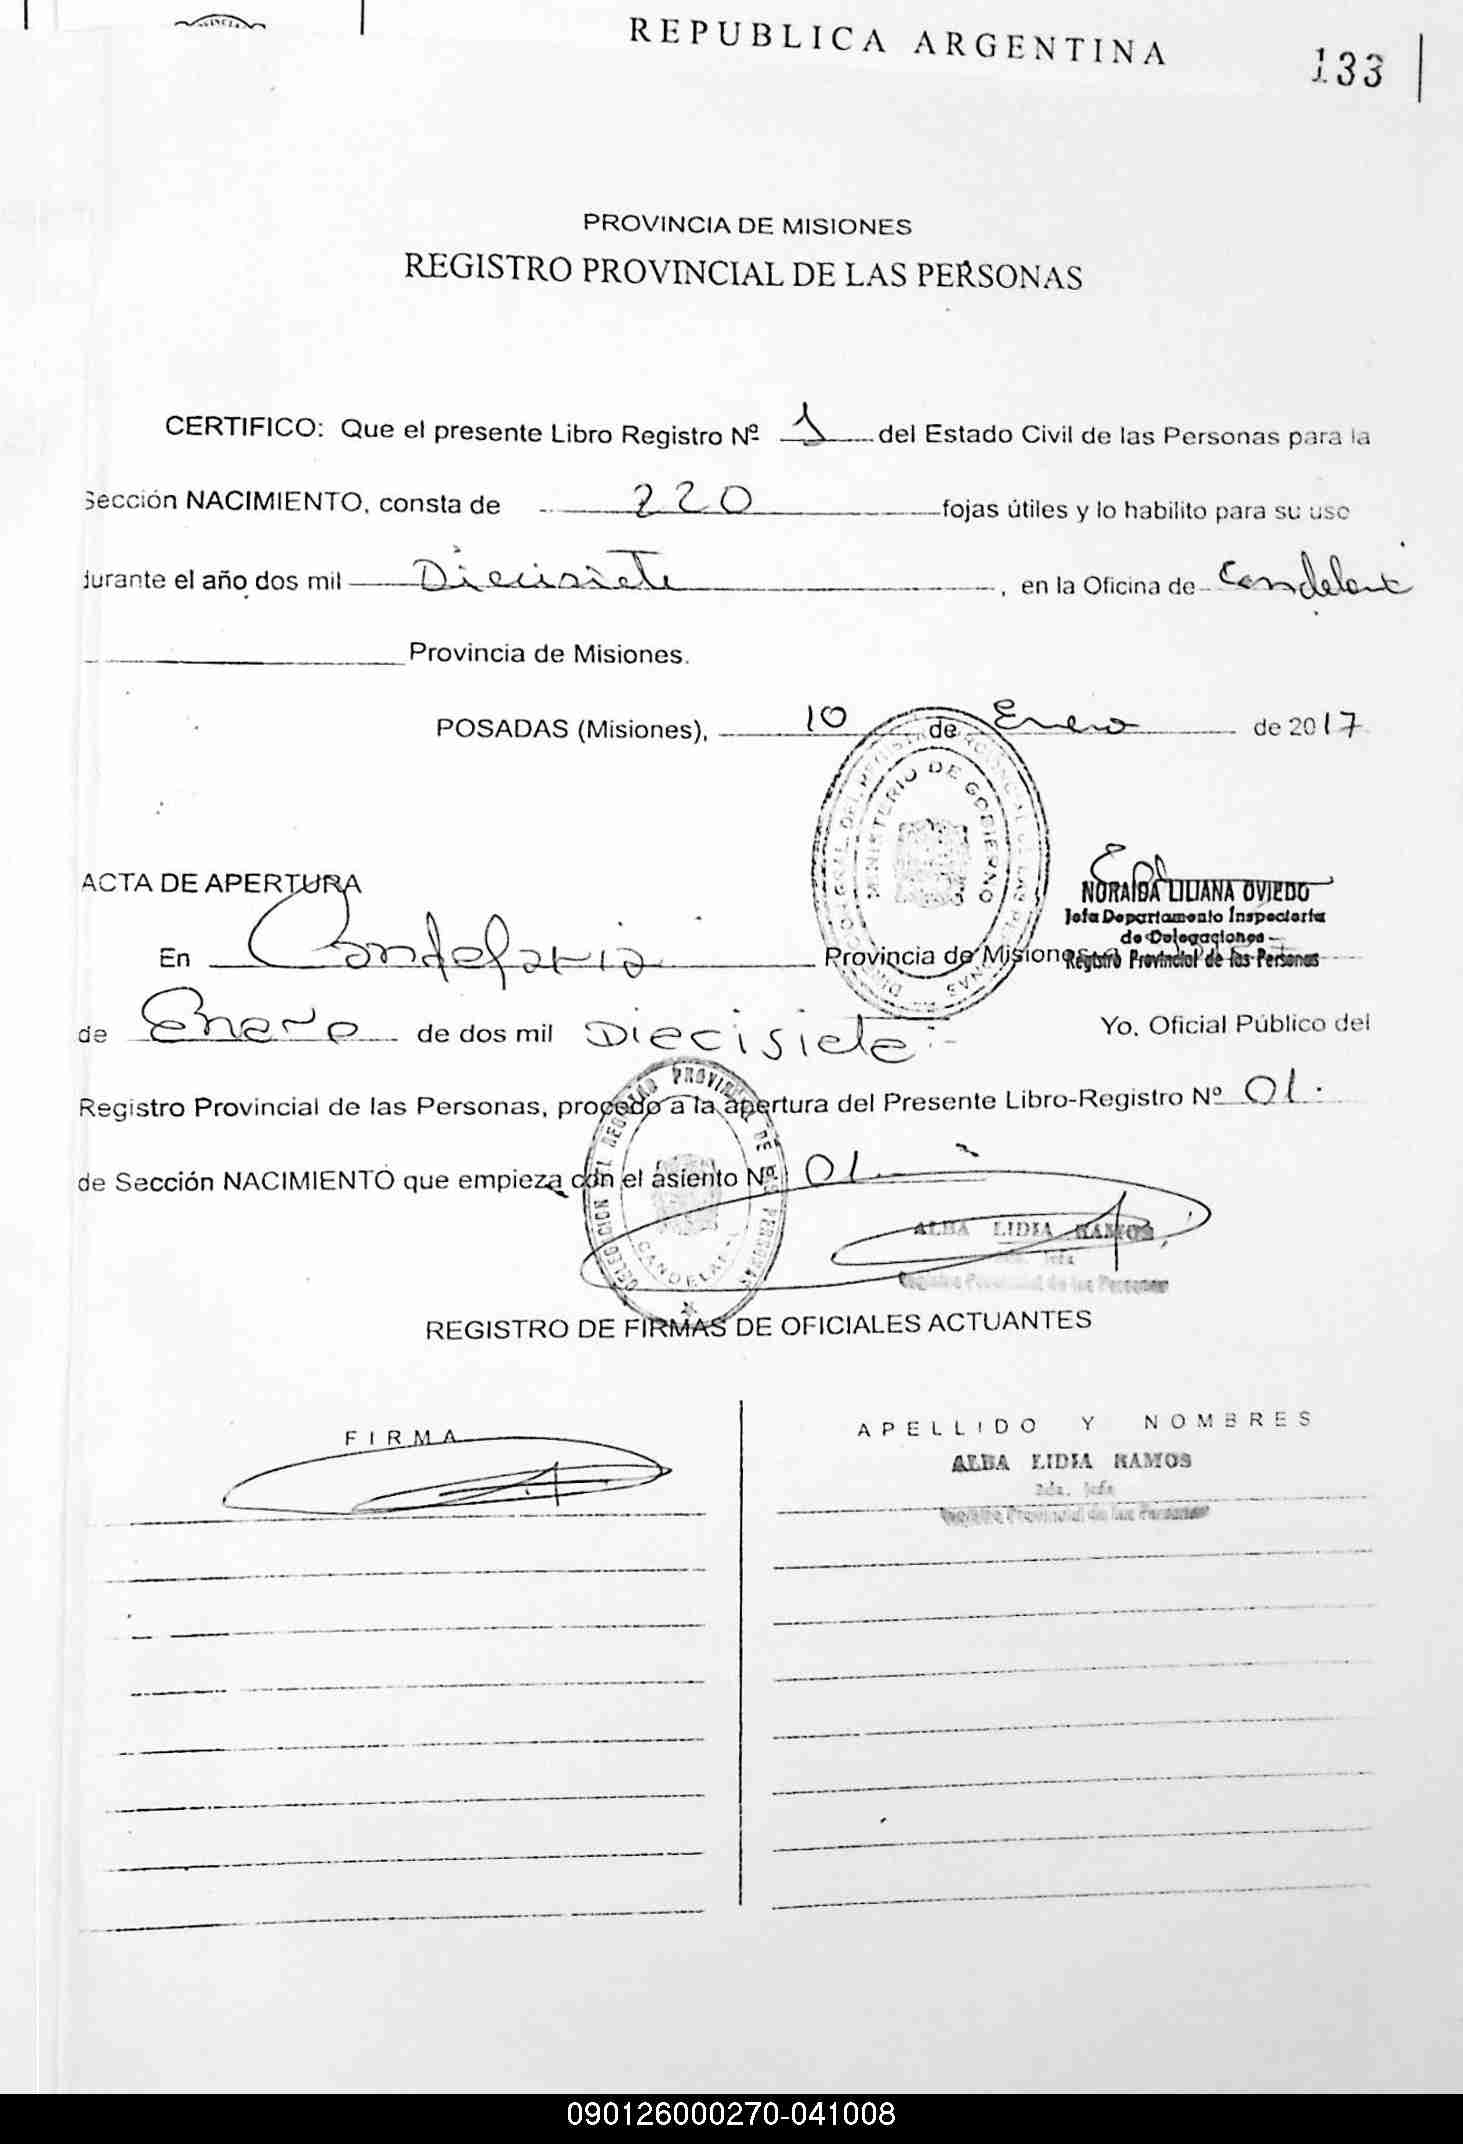 REPUBLICA ARGENTINA
133
PROVINCIA DE MISIONES
REGISTRO PROVINCIAL DE LAS PERSONAS
CERTIFICO: Que el presente Libro Registro Nº 1 del Estado Civil de las Personas para la
Sección NACIMIENTO, consta de 220 fojas útiles y lo habilito para su uso
durante el año dos mil Diecisiete, en la Oficina de Candelaria
Provincia de Misiones.
POSADAS (Misiones), 10 de Enero de 2017
MINISTERIO DE GOBIERNO
NORAIDA LILIANA OVIEDO
Jefa Departamento Inspectoria
de Delegaciones
Registro Provincial de las Personas
ACTA DE APERTURA
En Candelaria Provincia de Misiones
de Enero de dos mil Diecisiete Yo. Oficial Público del
Registro Provincial de las Personas, procedo a la apertura del Presente Libro-Registro Nº 01.
de Sección NACIMIENTO que empieza con el asiento Nº 01
ALBA LIDIA RAMOS
Jefa
Registro Provincial de las Personas
REGISTRO DE FIRMAS DE OFICIALES ACTUANTES
FIRMA
APELLIDO Y NOMBRES
ALBA LIDIA RAMOS
2da. Jefa
Registro Provincial de las Personas
090126000270-041008